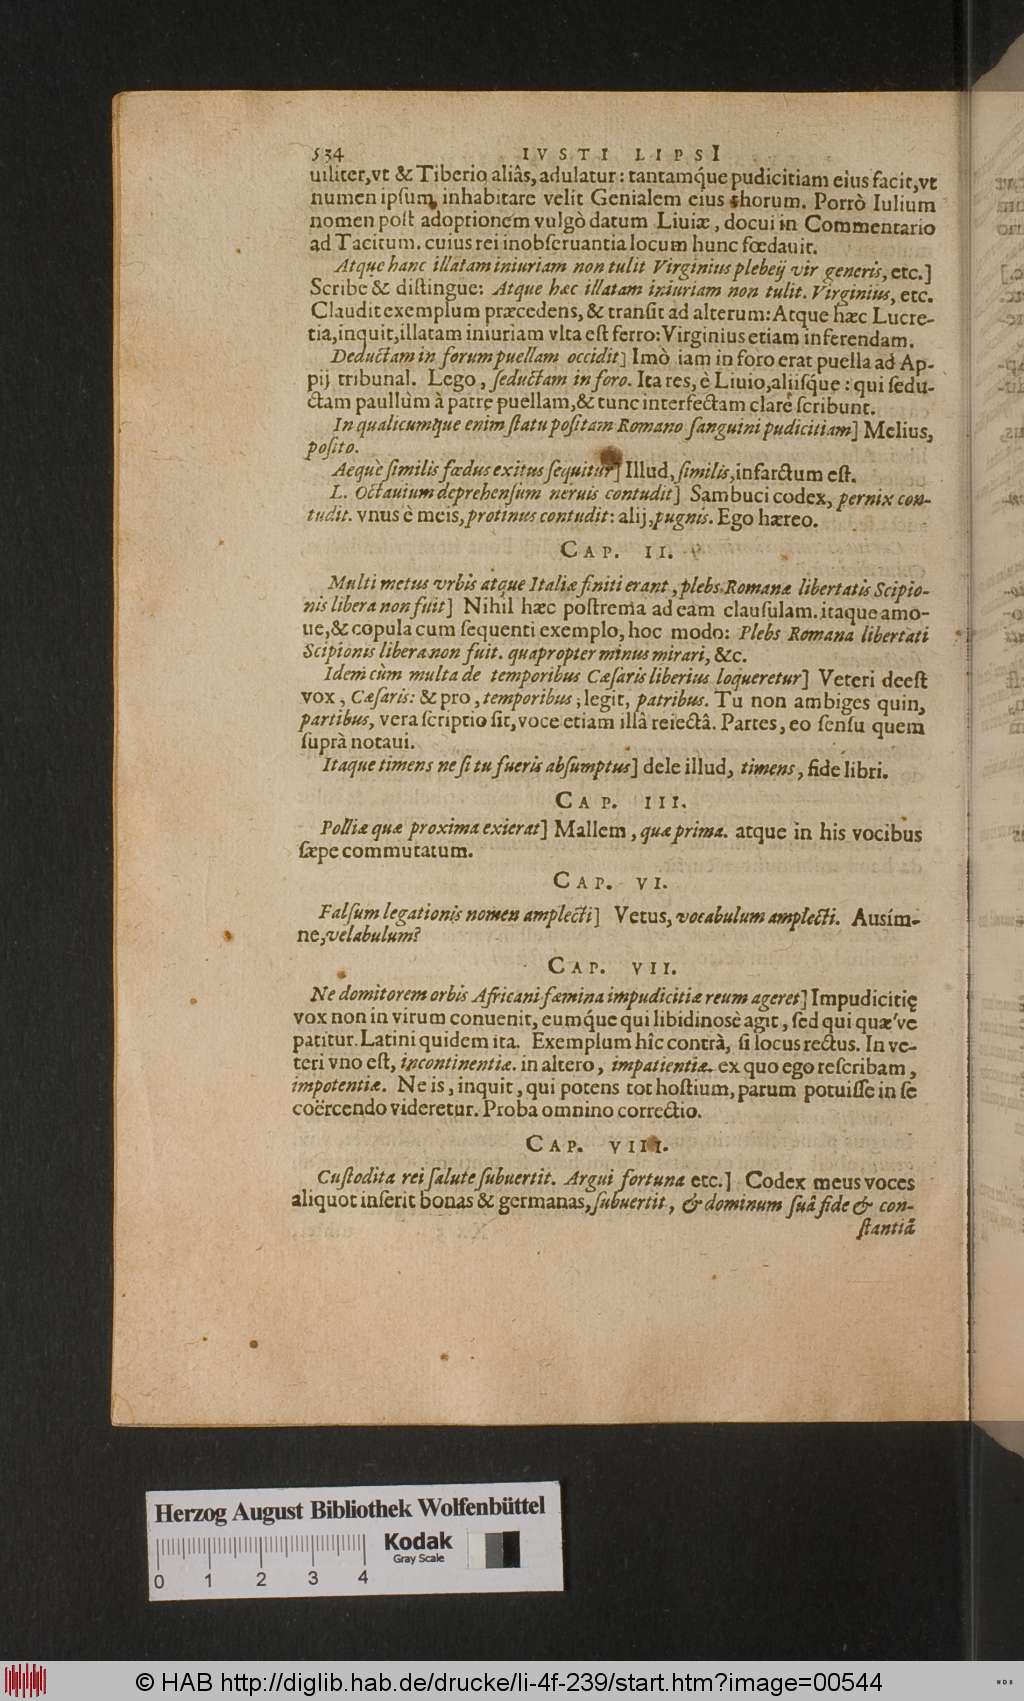 534 IVSTI LIPSI
uiliter, vt & Tiberio aliâs, adulatur: tantamq́ue pudicitiam eius facit, vt
numen ipsum inhabitare velit Genialem eius thorum. Porrò Iulium
nomen post adoptionem vulgò datum Liuiæ, docui in Commentario
ad Tacitum. cuius rei inobseruantia locum hunc fœdauit.
Atque hanc illatam iniuriam non tulit Virginius plebeij vir generis, etc.]
Scribe & distingue: Atque hæc illatam iniuriam non tulit. Virginius, etc.
Claudit exemplum præcedens, & transit ad alterum: Atque hæc Lucre-
tia, inquit, illatam iniuriam vlta est ferro: Virginius etiam inferendam.
Deductam in forum puellam occidit] Imò iam in foro erat puella ad Ap-
pij tribunal. Lego, seductam in foro. Ita res, è Liuio, aliisq́ue: qui sedu-
ctam paullùm à patre puellam, & tunc interfectam clarè scribunt.
In qualicumque enim statu positam Romano sanguini pudicitiam] Melius,
posito.
Aequè similis fœdus exitus sequitur] Illud, similis, infarctum est.
L. Octauium deprehensum neruis contudit] Sambuci codex, pernix con-
tudit. vnus è meis, protinus contudit: alij, pugnis. Ego hæreo.
CAP. II.
Multi metus vrbis atque Italiæ finiti erant, plebs Romana libertatis Scipio-
nis libera non fuit] Nihil hæc postrema ad eam clausulam. itaque amo-
ue, & copula cum sequenti exemplo, hoc modo: Plebs Romana libertati
Scipionis libera non fuit. quapropter minus mirari, &c.
Idem cùm multa de temporibus Cæsaris liberius loqueretur] Veteri deest
vox, Cæsaris: & pro, temporibus, legit, patribus. Tu non ambiges quin,
partibus, vera scriptio sit, voce etiam illâ reiectâ. Partes, eo sensu quem
suprà notaui.
Itaque timens ne si tu fueris absumptus] dele illud, timens, fide libri.
CAP. III.
Polliæ quæ proxima exierat] Mallem, quæ prima. atque in his vocibus
sæpe commutatum.
CAP. VI.
Falsum legationis nomen amplecti] Vetus, vocabulum amplecti. Ausím-
ne, velabulum?
CAP. VII.
Ne domitorem orbis Africani fæmina impudicitiæ reum ageret] Impudicitię
vox non in virum conuenit, eumq́ue qui libidinosè agit, sed qui quæ've
patitur. Latini quidem ita. Exemplum hîc contrà, si locus rectus. In ve-
teri vno est, incontinentiæ. in altero, impatientiæ. ex quo ego rescribam,
impotentiæ. Ne is, inquit, qui potens tot hostium, parum potuisse in se
coërcendo videretur. Proba omnino correctio.
CAP. VIII.
Custodita rei salute subuertit. Argui fortuna etc.] Codex meus voces
aliquot inserit bonas & germanas, subuertit, & dominum suâ fide & con-
stantiâ
Herzog August Bibliothek Wolfenbüttel
Kodak
Gray Scale
0 1 2 3 4
© HAB http://diglib.hab.de/drucke/li-4f-239/start.htm?image=00544